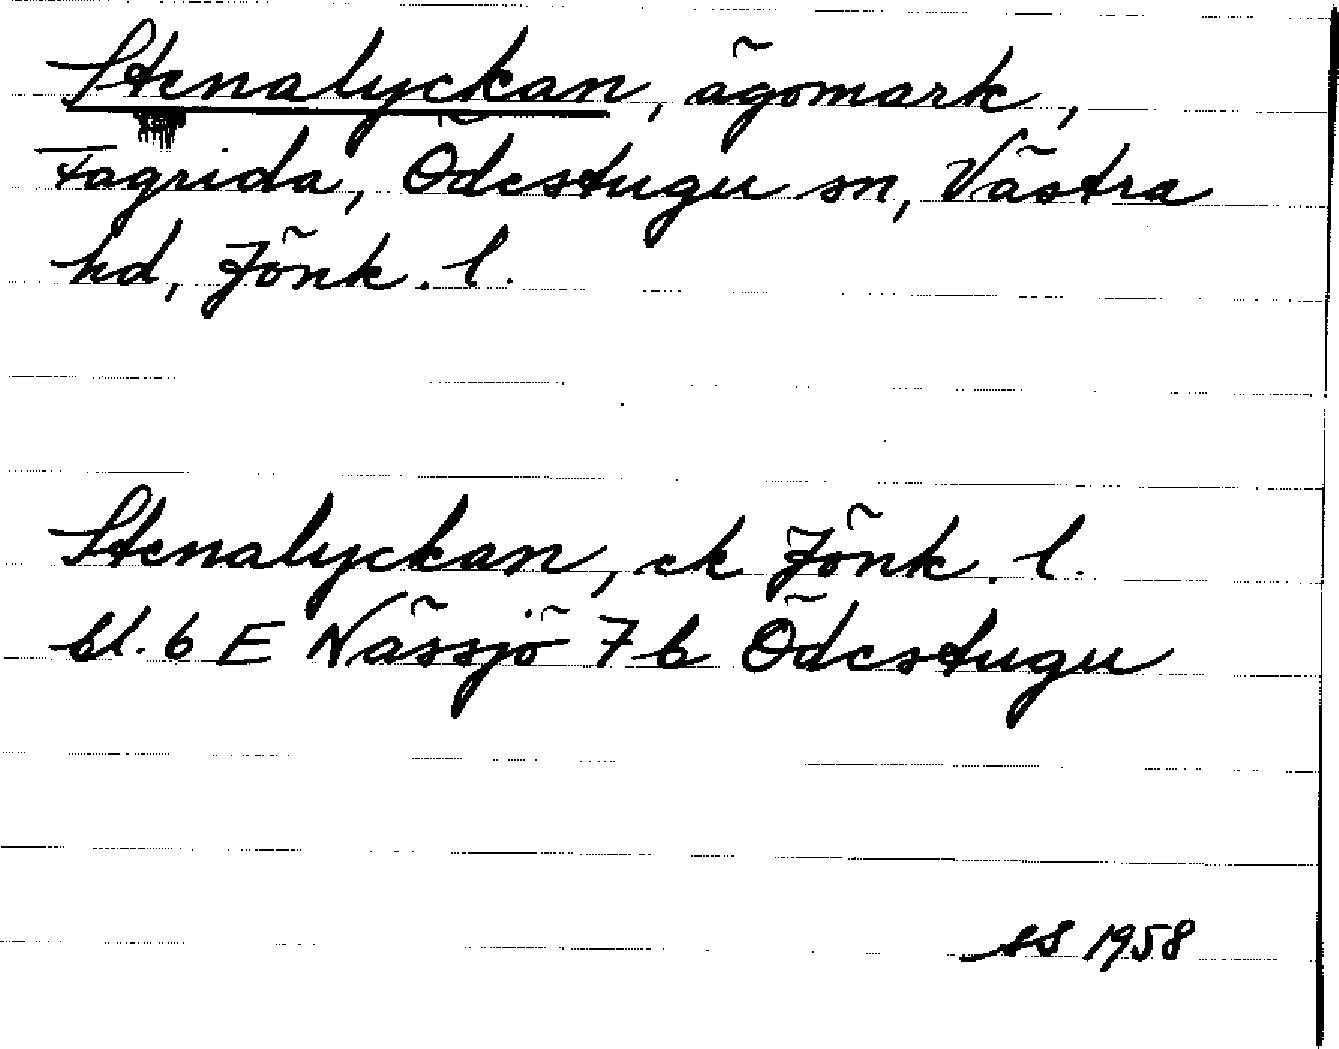 Stenalyckan, ägomark,
Fagrida, Ödestugu sn, Västra
hd, Jönk. l.
Stenalyckan, ek Jönk. l.
bl. 6 E Nässjö 7 b Ödestugu
SS 1958